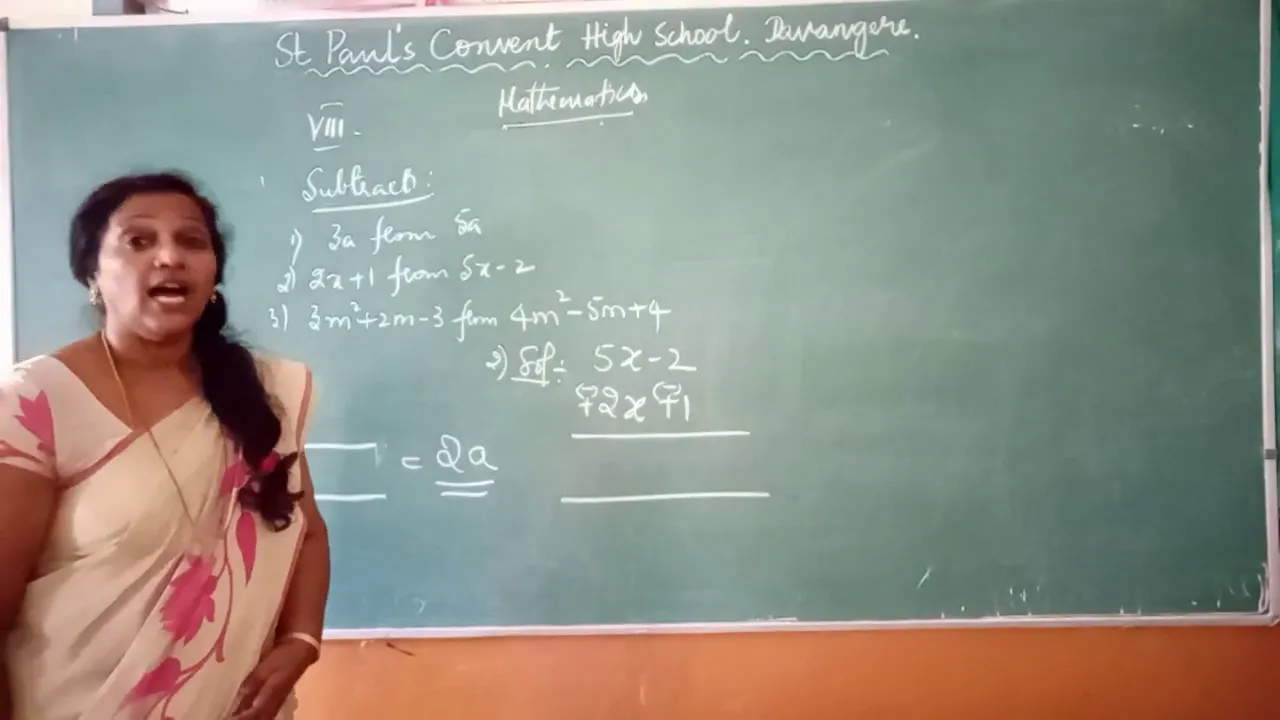 St Paul's Convent High School. Davangere.
Mathematics
VIII.
Subtract:
1) 3a from 5a
2) 2x+1 from 5x-2
3) 3m²+2m-3 from 4m²-5m+4
2) Sol:- 5x-2
(-)
+2x
(-)
+1
= 2a